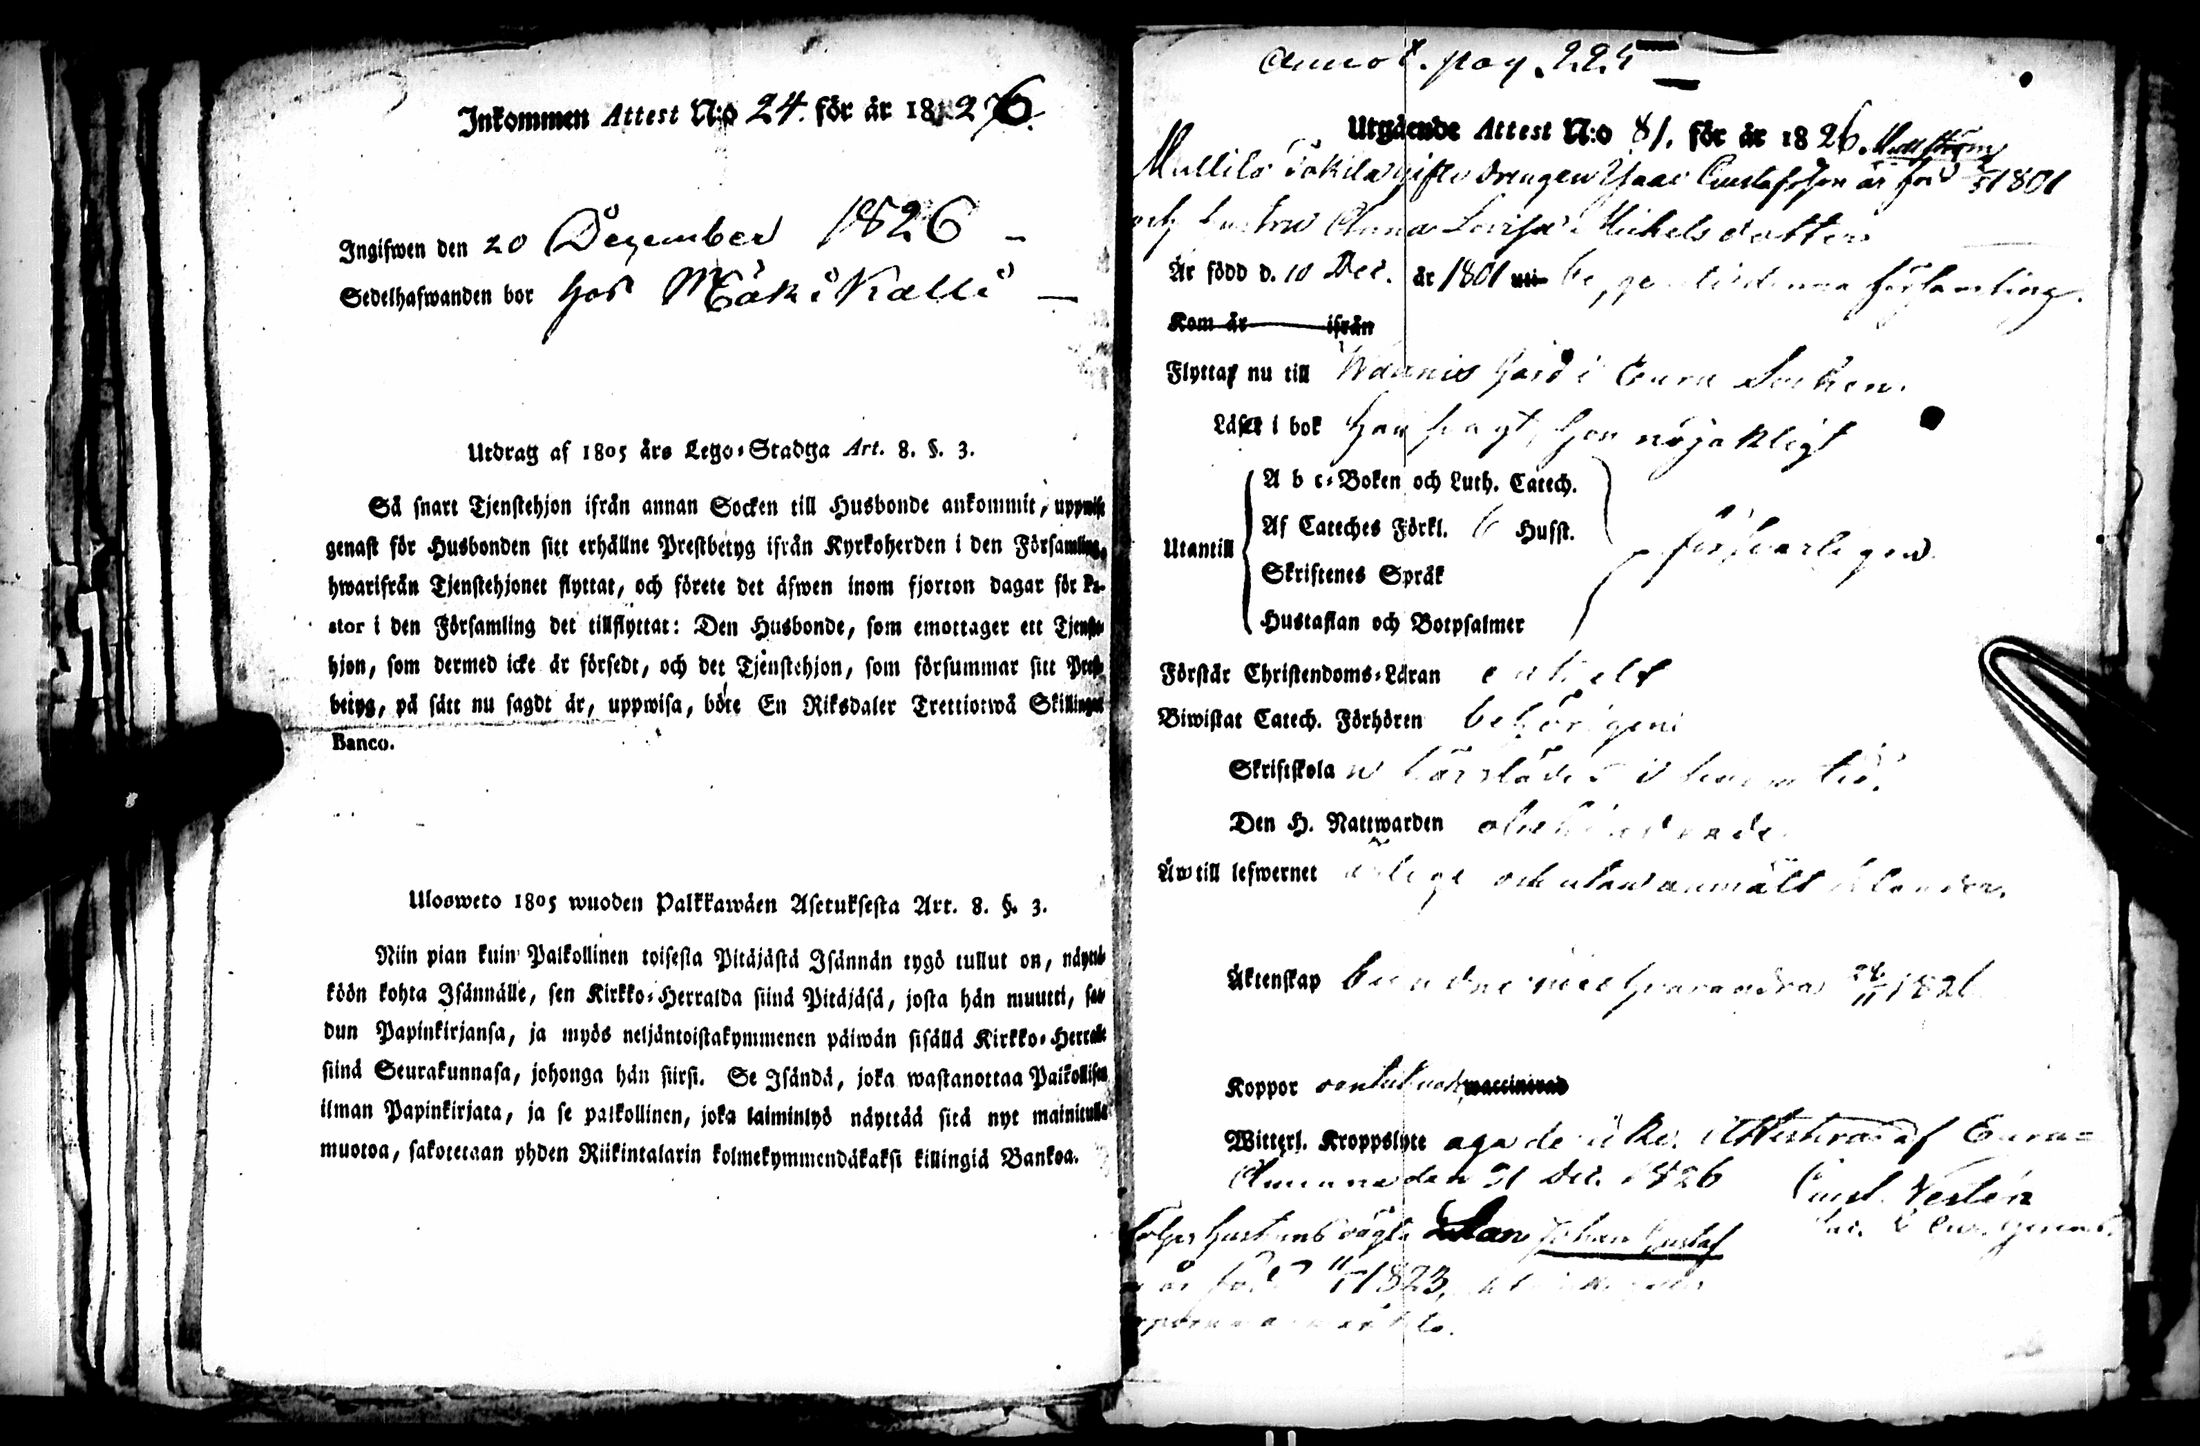 Inkommen Attest N:o 24. för år 1826.
Ingifwen den 20 Dezember 1826 –
Sedelhafwanden bor hos Mäkikalli –
Utdrag af 1805 års Lego-Stadga Art. 8. §. 3.
Så snart Tjenstehjon ifrån annan Socken till Husbonde ankommit, uppwise
genast för Husbonden sitt erhållne Prestbetyg ifrån Kyrkoherden i den Församling,
hwarifrån Tjenstehjonet flyttat, och förete det äfwen inom fjorton dagar för Pa-
stor i den Församling det tillflyttat: Den Husbonde, som emottager ett Tjenste-
hjon, som dermed icke är försedt, och det Tjenstehjon, som försummar sitt Prest-
betyg, på sätt nu sagdt är, uppwisa, böte En Riksdaler Trettiotwå Skillingar
Banco.
Ulosweto 1805 wuoden Palkkawäen Asetuksesta Art. 8. §. 3.
Niin pian kuin Palkollinen toisesta Pitäjästä Isännän tygö tullut on, näyttä-
köön kohta Isännälle, sen Kirkko-Herralda siinä Pitäjäsä, josta hän muutti, saa-
dun Papinkirjansa, ja myös neljäntoistakymmenen päiwän sisällä Kirkko-Herralle
siinä Seurakunnasa, johonga hän siirsi. Se Isändä, joka wastanottaa Palkollisen
ilman Papinkirjata, ja se palkollinen, joka laiminlyö näyttää sitä nyt mainitulla
muotoa, sakotetaan yhden Riikintalarin kolmekymmendäkaksi killingiä Bankoa.
Annot. pag. 225
Utgående Attest N:o 81. för år 1826.
drengen Isaac Gustafsson är född 1801
och hustru Anna Lovisa Michelsdotter
Är född d. 10 Dec. år 1801 uti församling.
Kom år ifrån
Flyttat nu till gård i Eura Socken.
Läser i bok han svagt, hon nöjakligt
Utantill
A b c-Boken och Luth. Catech.
Af Cateches Förkl. 6 Husst.
Skriftenes Språk
Hustaflan och Botpsalmer
försvarligen.
Förstår Christendoms-Läran enkelt
Biwistat Catech. Förhören behörigen
Skriftskola
Den H. Nattwarden obehindrade
Är till lefwernet ärlige och utan anmält klander.
Äktenskap 26/11 1826
Koppor waccinerad
Witterl. Kroppslyte äga de icke. af Eura
den 21 Dec. 1826
Gust. Neslén
Följer hustruns oägta Son Johan Gustaf
är född 1823,